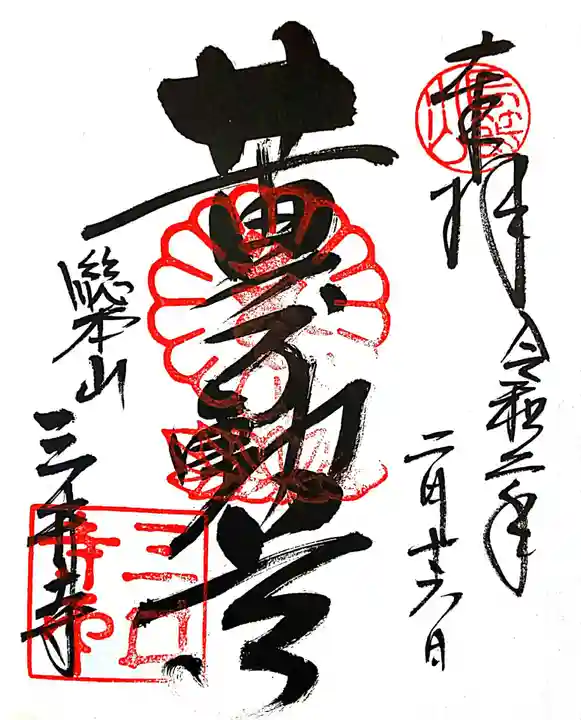 奉拝
令和二年
二月十六日
黄不動尊
總本山
三井寺
長等山
三井寺印